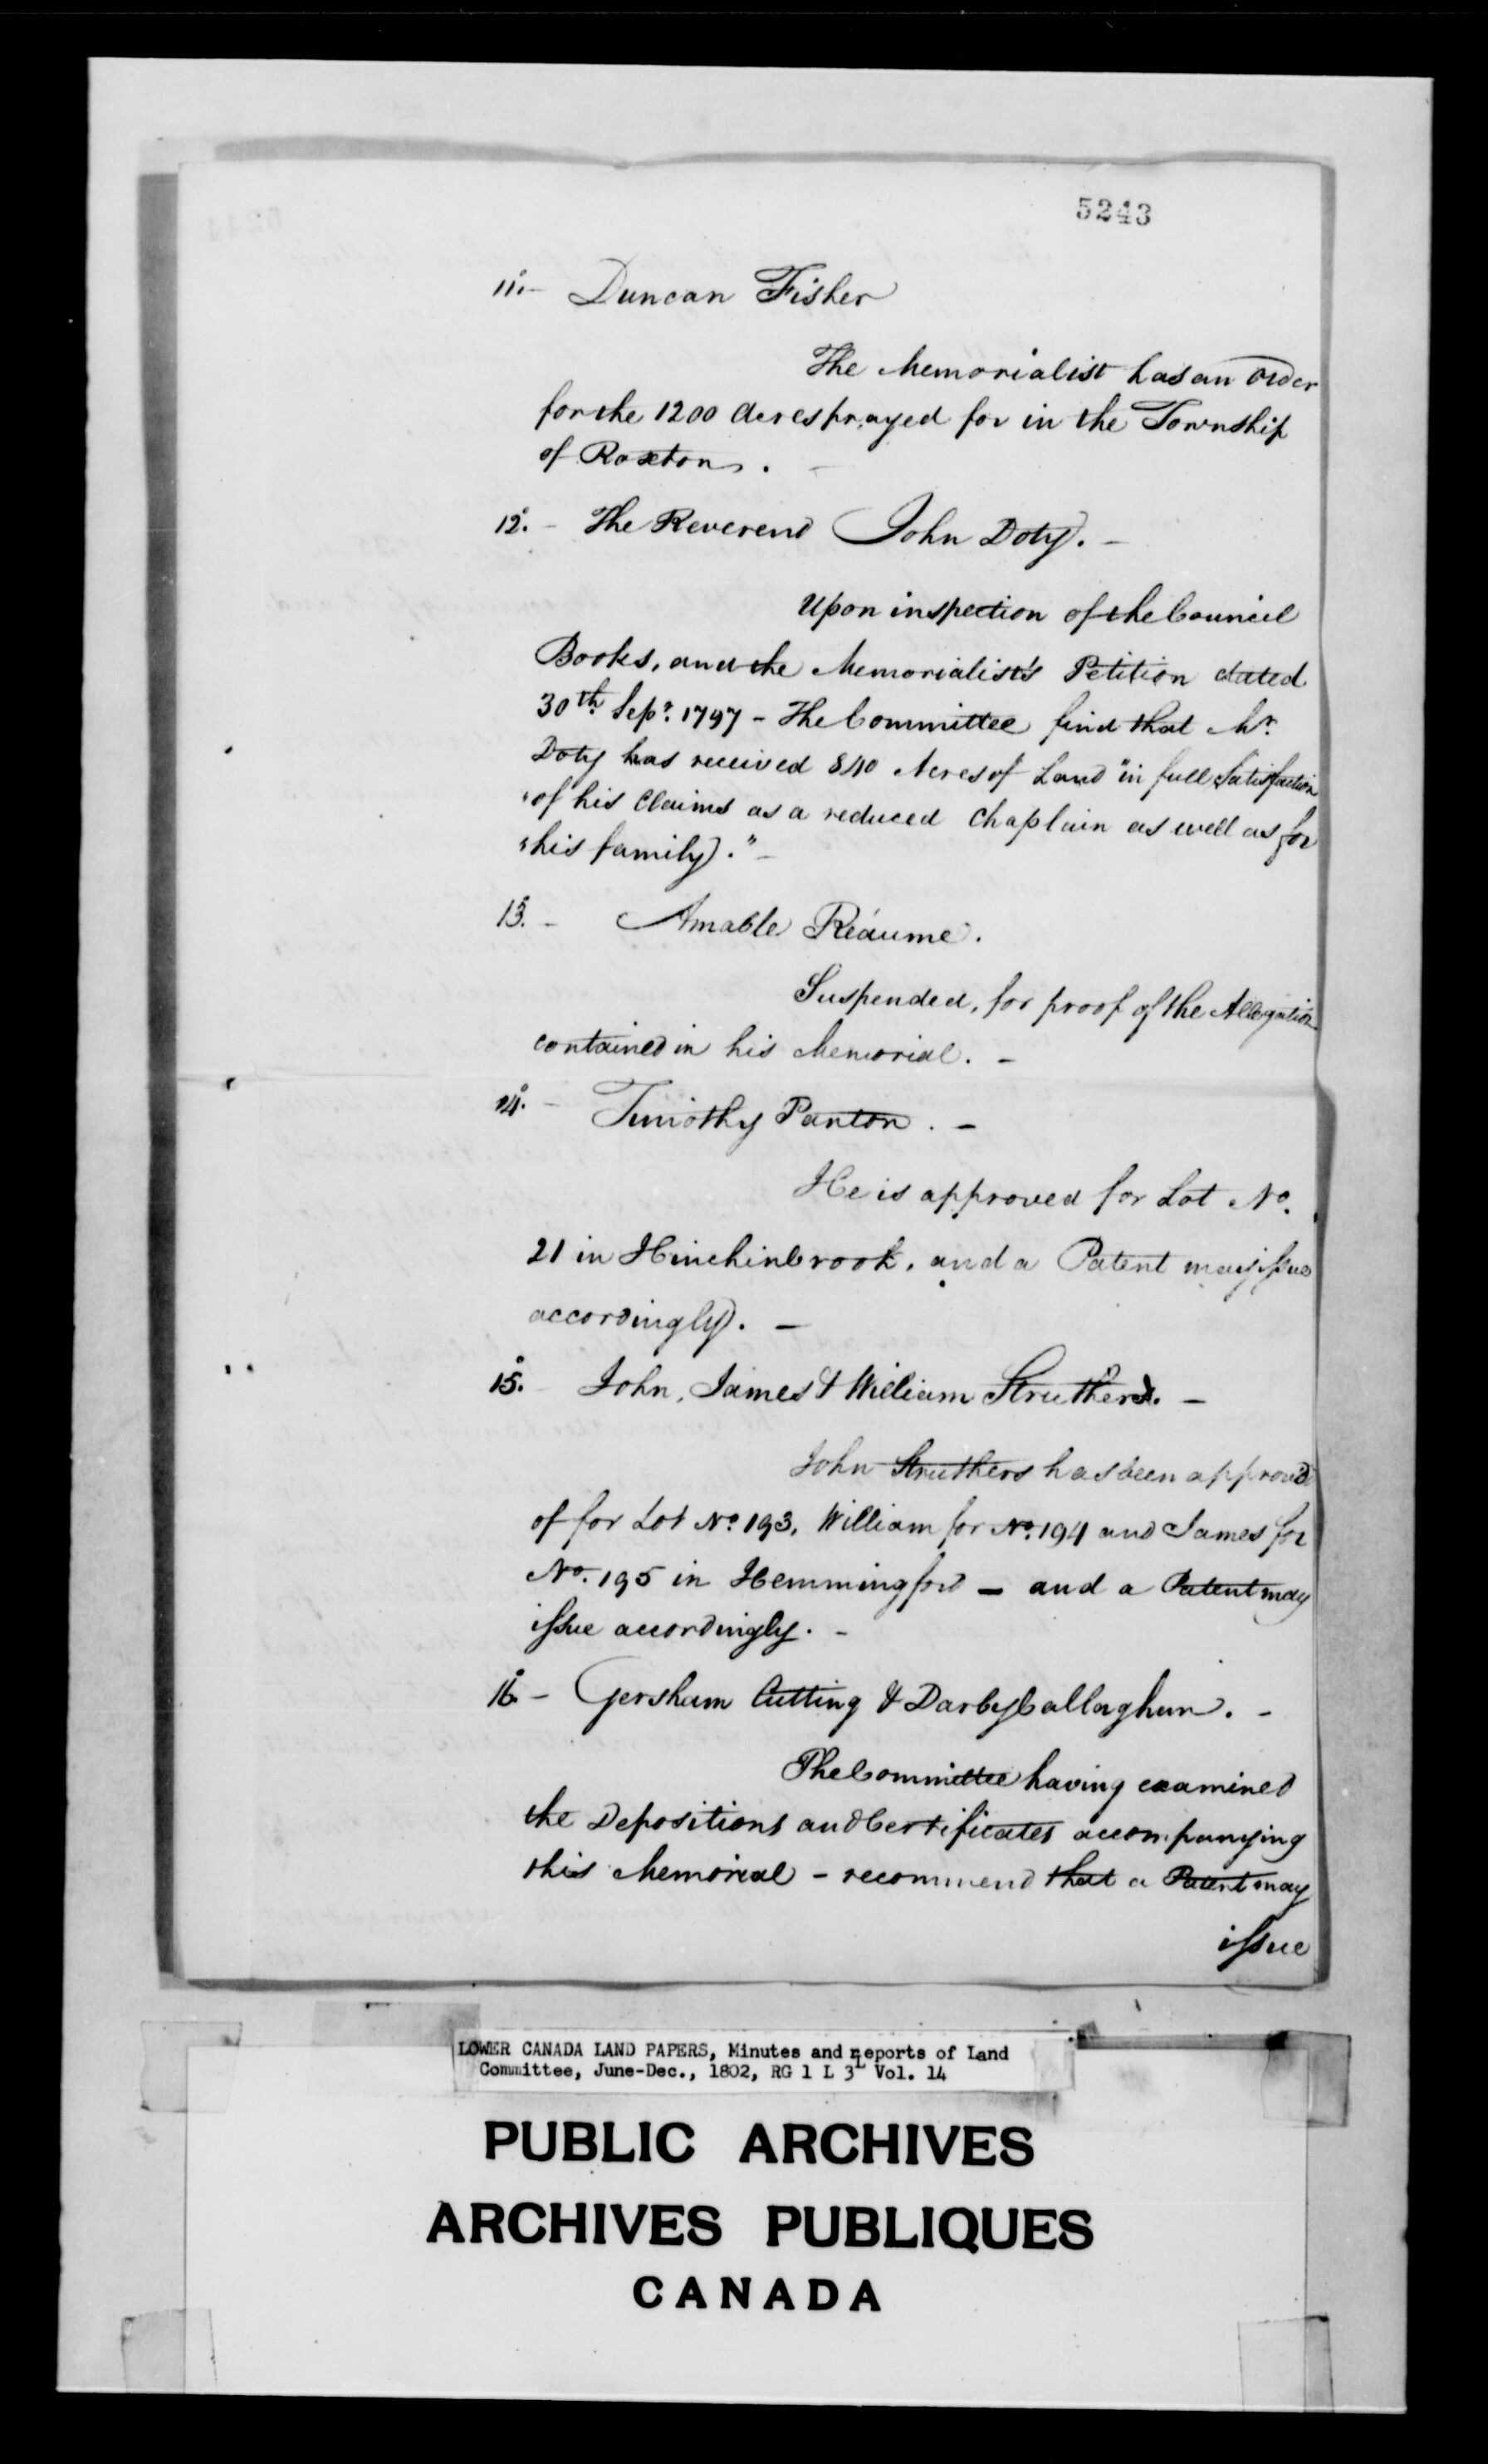 5243
11°. - Duncan Fisher
The Memorialist has an Order
for the 1200 Acres prayed for in the Township
of Roxton. -
12°. - The Reverend John Doty. -
Upon inspection of the Council
Books, and the Memorialist's Petition dated
30th. Sepr. 1797 - The Committee find that Mr.
Doty has received 840 Acres of Land "in full Satisfaction
"of his Claims as a reduced Chaplain as well as for
"his family." -
13°. - Amable Réaume.
Suspended, for proof of the Allegation
contained in his Memorial. -
14°. - Timothy Panton. -
He is approved for Lot No.
21 in Hinchinbrook, and a Patent may issue
accordingly. -
15°. - John, James & William Struthers. -
John Struthers has been approved
of for Lot No. 193, William for No. 194 and James for
No. 195 in Hemmingford - and a Patent may
issue accordingly. -
16°. - Gershum Cutting & Darby Callaghan. -
The Committee having examined
the Depositions and Certificates accompanying
this Memorial - recommend that a Patent may
issue
LOWER CANADA LAND PAPERS, Minutes and Reports of Land
Committee, June-Dec., 1802, RG 1 L 3L Vol. 14
PUBLIC ARCHIVES
ARCHIVES PUBLIQUES
CANADA